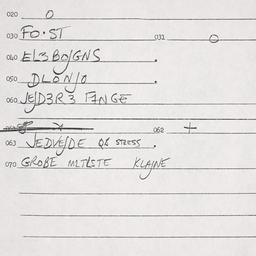 020 O
030 FO·ST 031 O
040 EL3BOJGNS .
050 DLONJO .
060 JEJD3R3 FINGE
062 +
063 JEDVEJDE Q6 STRESS .
070 GROBE MLTLSTE KLAJNE